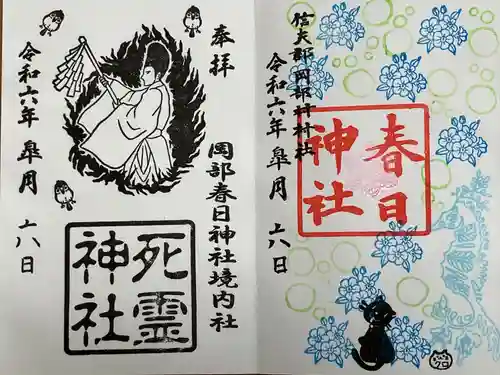 春日
神社
信夫郡岡部村村社
令和六年 皐月 六日
奉拝
岡部春日神社境内社
死霊
神社
令和六年 皐月 六日